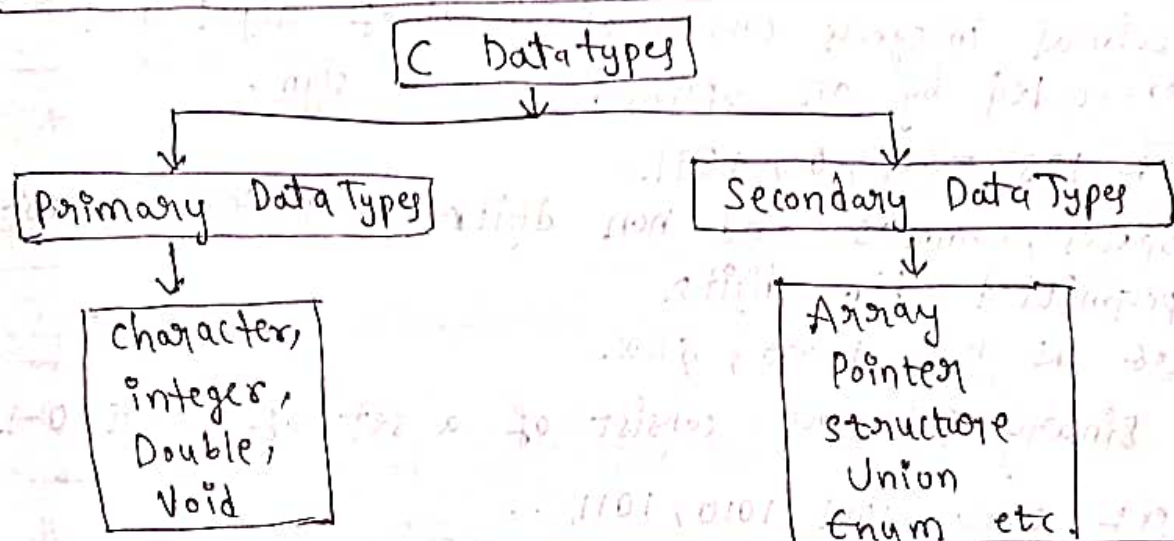 C Datatypes
Primary Data Types
Secondary Data Types
Character,
integer,
Double,
Void
Array
Pointer
structure
Union
Enum etc.